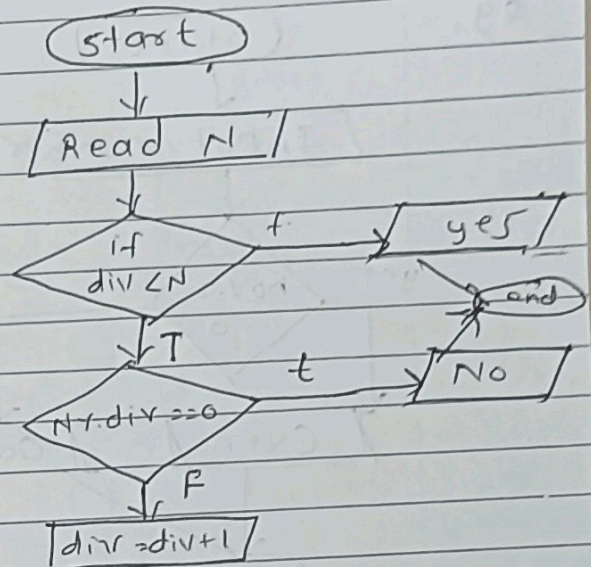 Start
Read N
if
div < N
f
yes
end
T
N%div==0
t
No
F
div=div+1